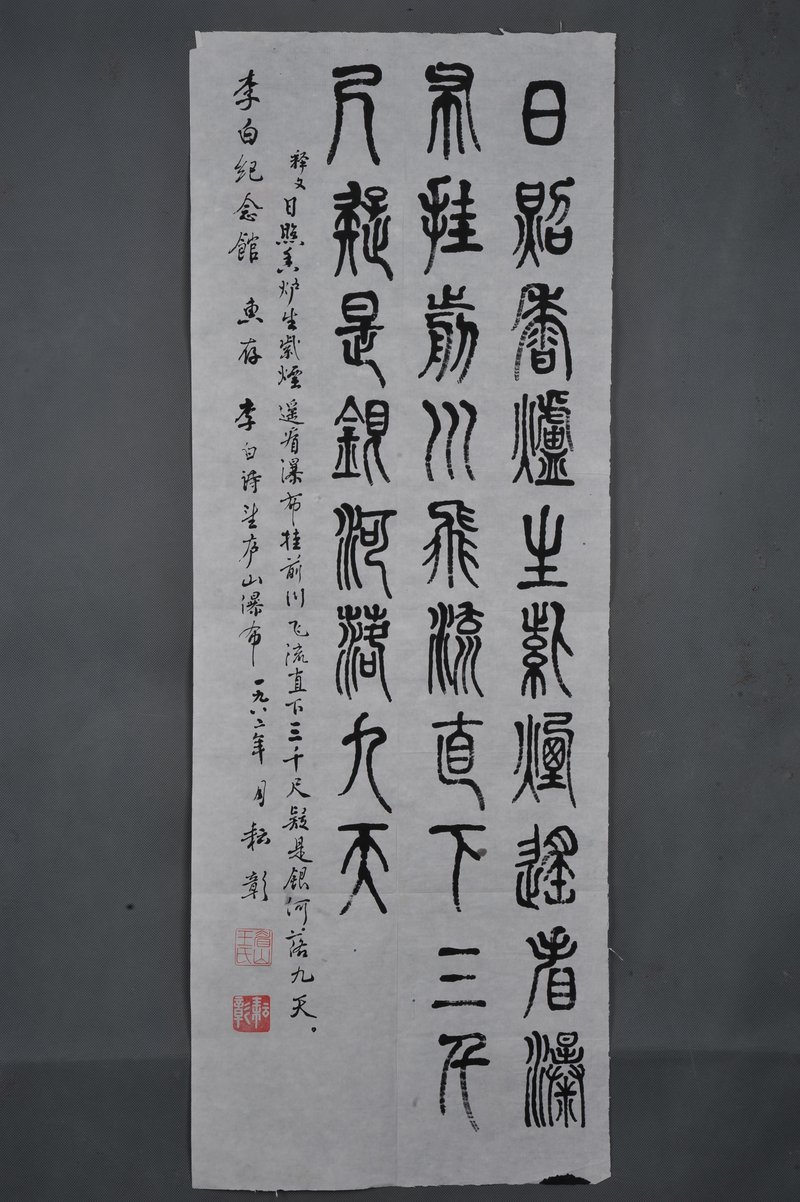 日照香爐生紫煙遙看瀑
布挂前川飛流直下三千
尺疑是銀河落九天
释文 日照香炉生紫煙 遥看瀑布挂前川 飞流直下三千尺 疑是銀河落九天。
李白纪念館 惠存 李白诗望庐山瀑布 一九八二年 月 耘彰
眉山王氏
耘彰